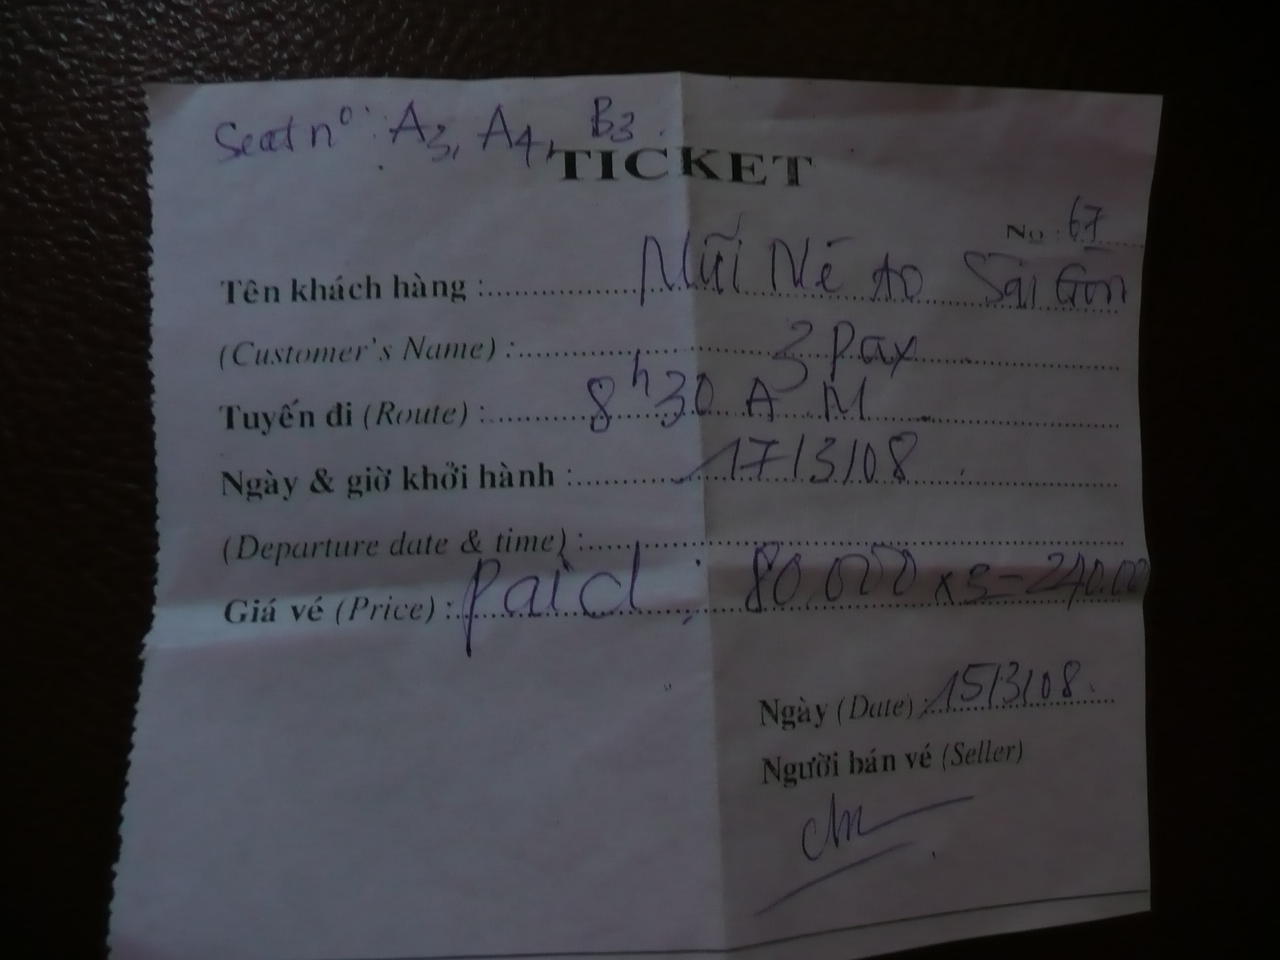 Seat nº: A3, A4, B3.
TICKET
No : 67
Tên khách hàng : Mũi Né to Sài Gòn
(Customer's Name) : 3 pax
Tuyến đi (Route) : 8h30 AM
Ngày & giờ khởi hành : 17/3/08
(Departure date & time) :
Giá vé (Price) : paid : 80.000 x 3 = 240.000
Ngày (Date) : 15/3/08.
Người bán vé (Seller)